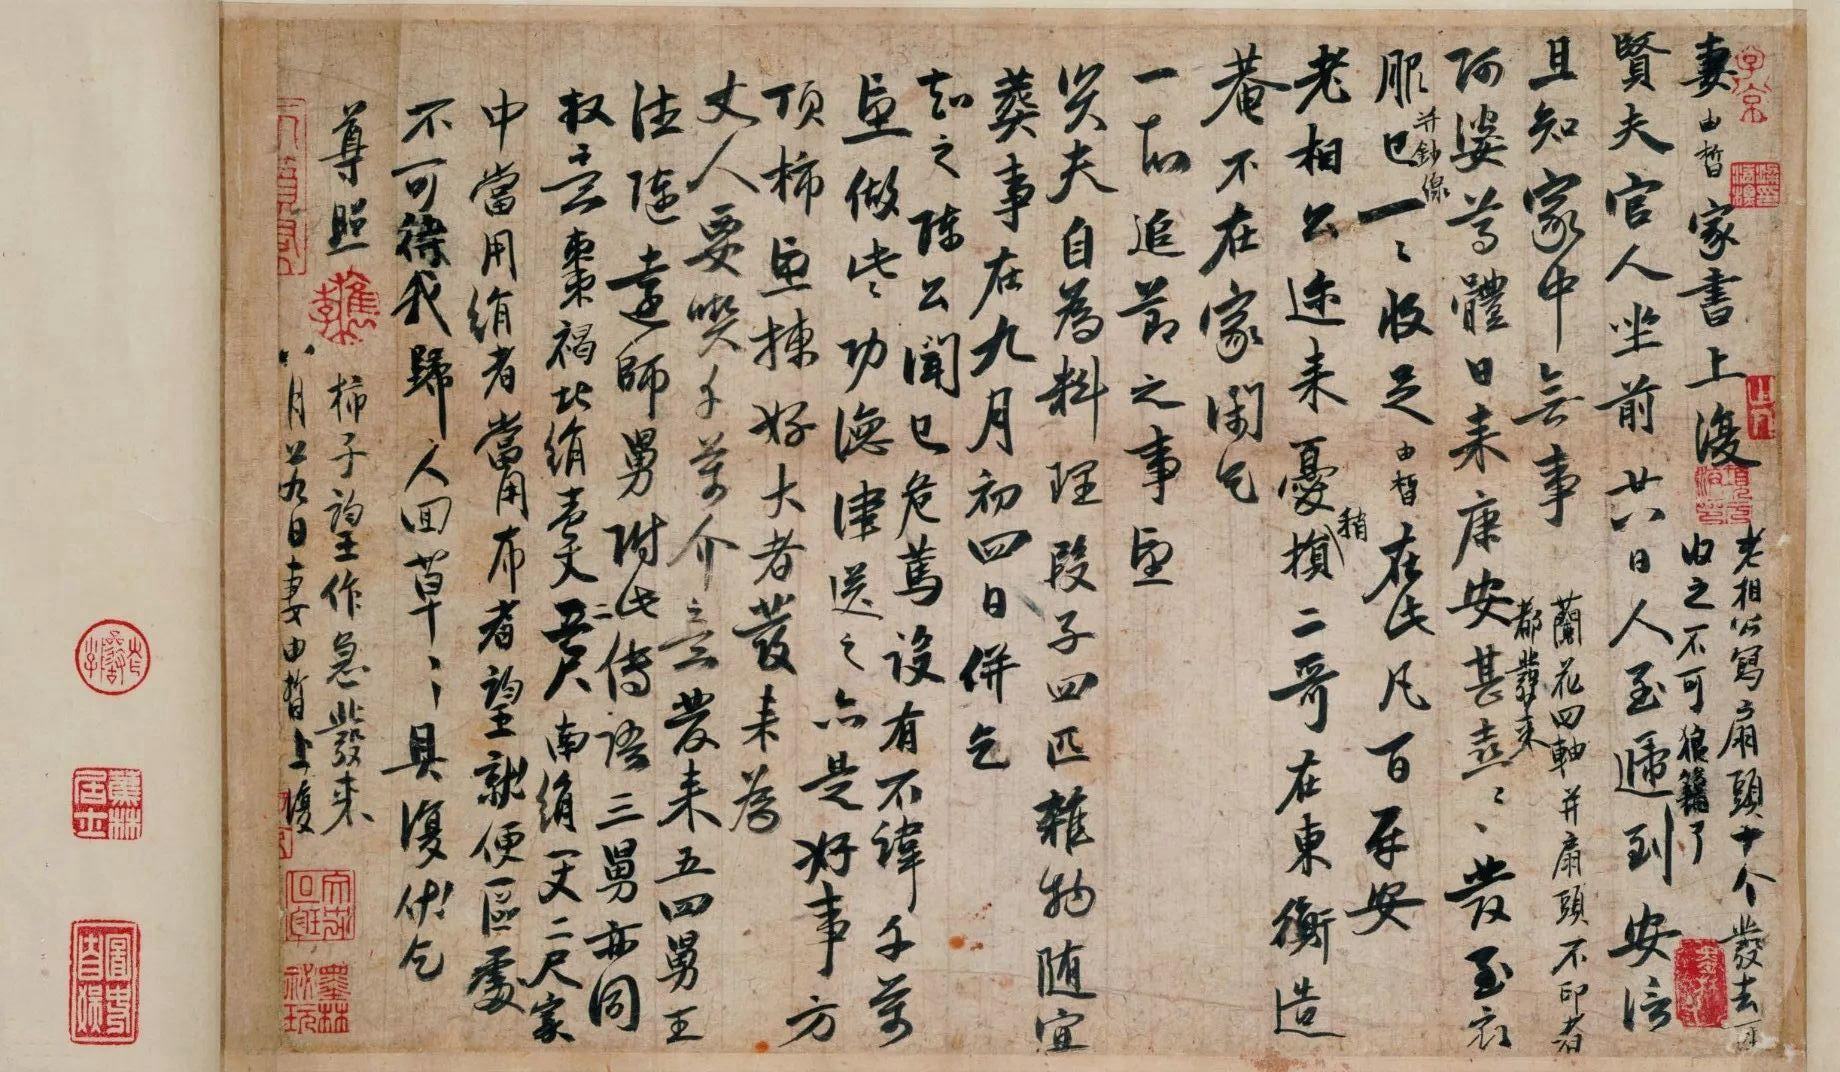 妻由皙家書上復
老相公寫扇頭十个發去可
收之不可狼籍了
賢夫官人坐前廿六日人至遞到安信
且知家中無事
蘭花四軸并扇頭不印者
都發來
阿婆尊體日來康安甚喜〻發至衣
服并鈔線已一〻收足由皙在此凡百平安
老相公迩来稍憂損二哥在東衡造
菴不在家閑乞
一一追節之事望
賢夫自為料理段子四匹雜物随宜
葬事在九月初四日併乞
知之陳公聞已危篤設有不諱千萬
望做些功德津送之亦是好事方
頂柿望揀好大者發来為
丈人要喫千萬介意發来五四舅王
法隨書達師舅附此傳語三舅亦同
叔言棗褐北絹壹丈五尺南絹一丈二尺家
中當用絹者當用布者望就便區處
不可待我歸人回草〻具復伏乞
尊照 柿子望作急發来
八月廿九日妻由皙上復